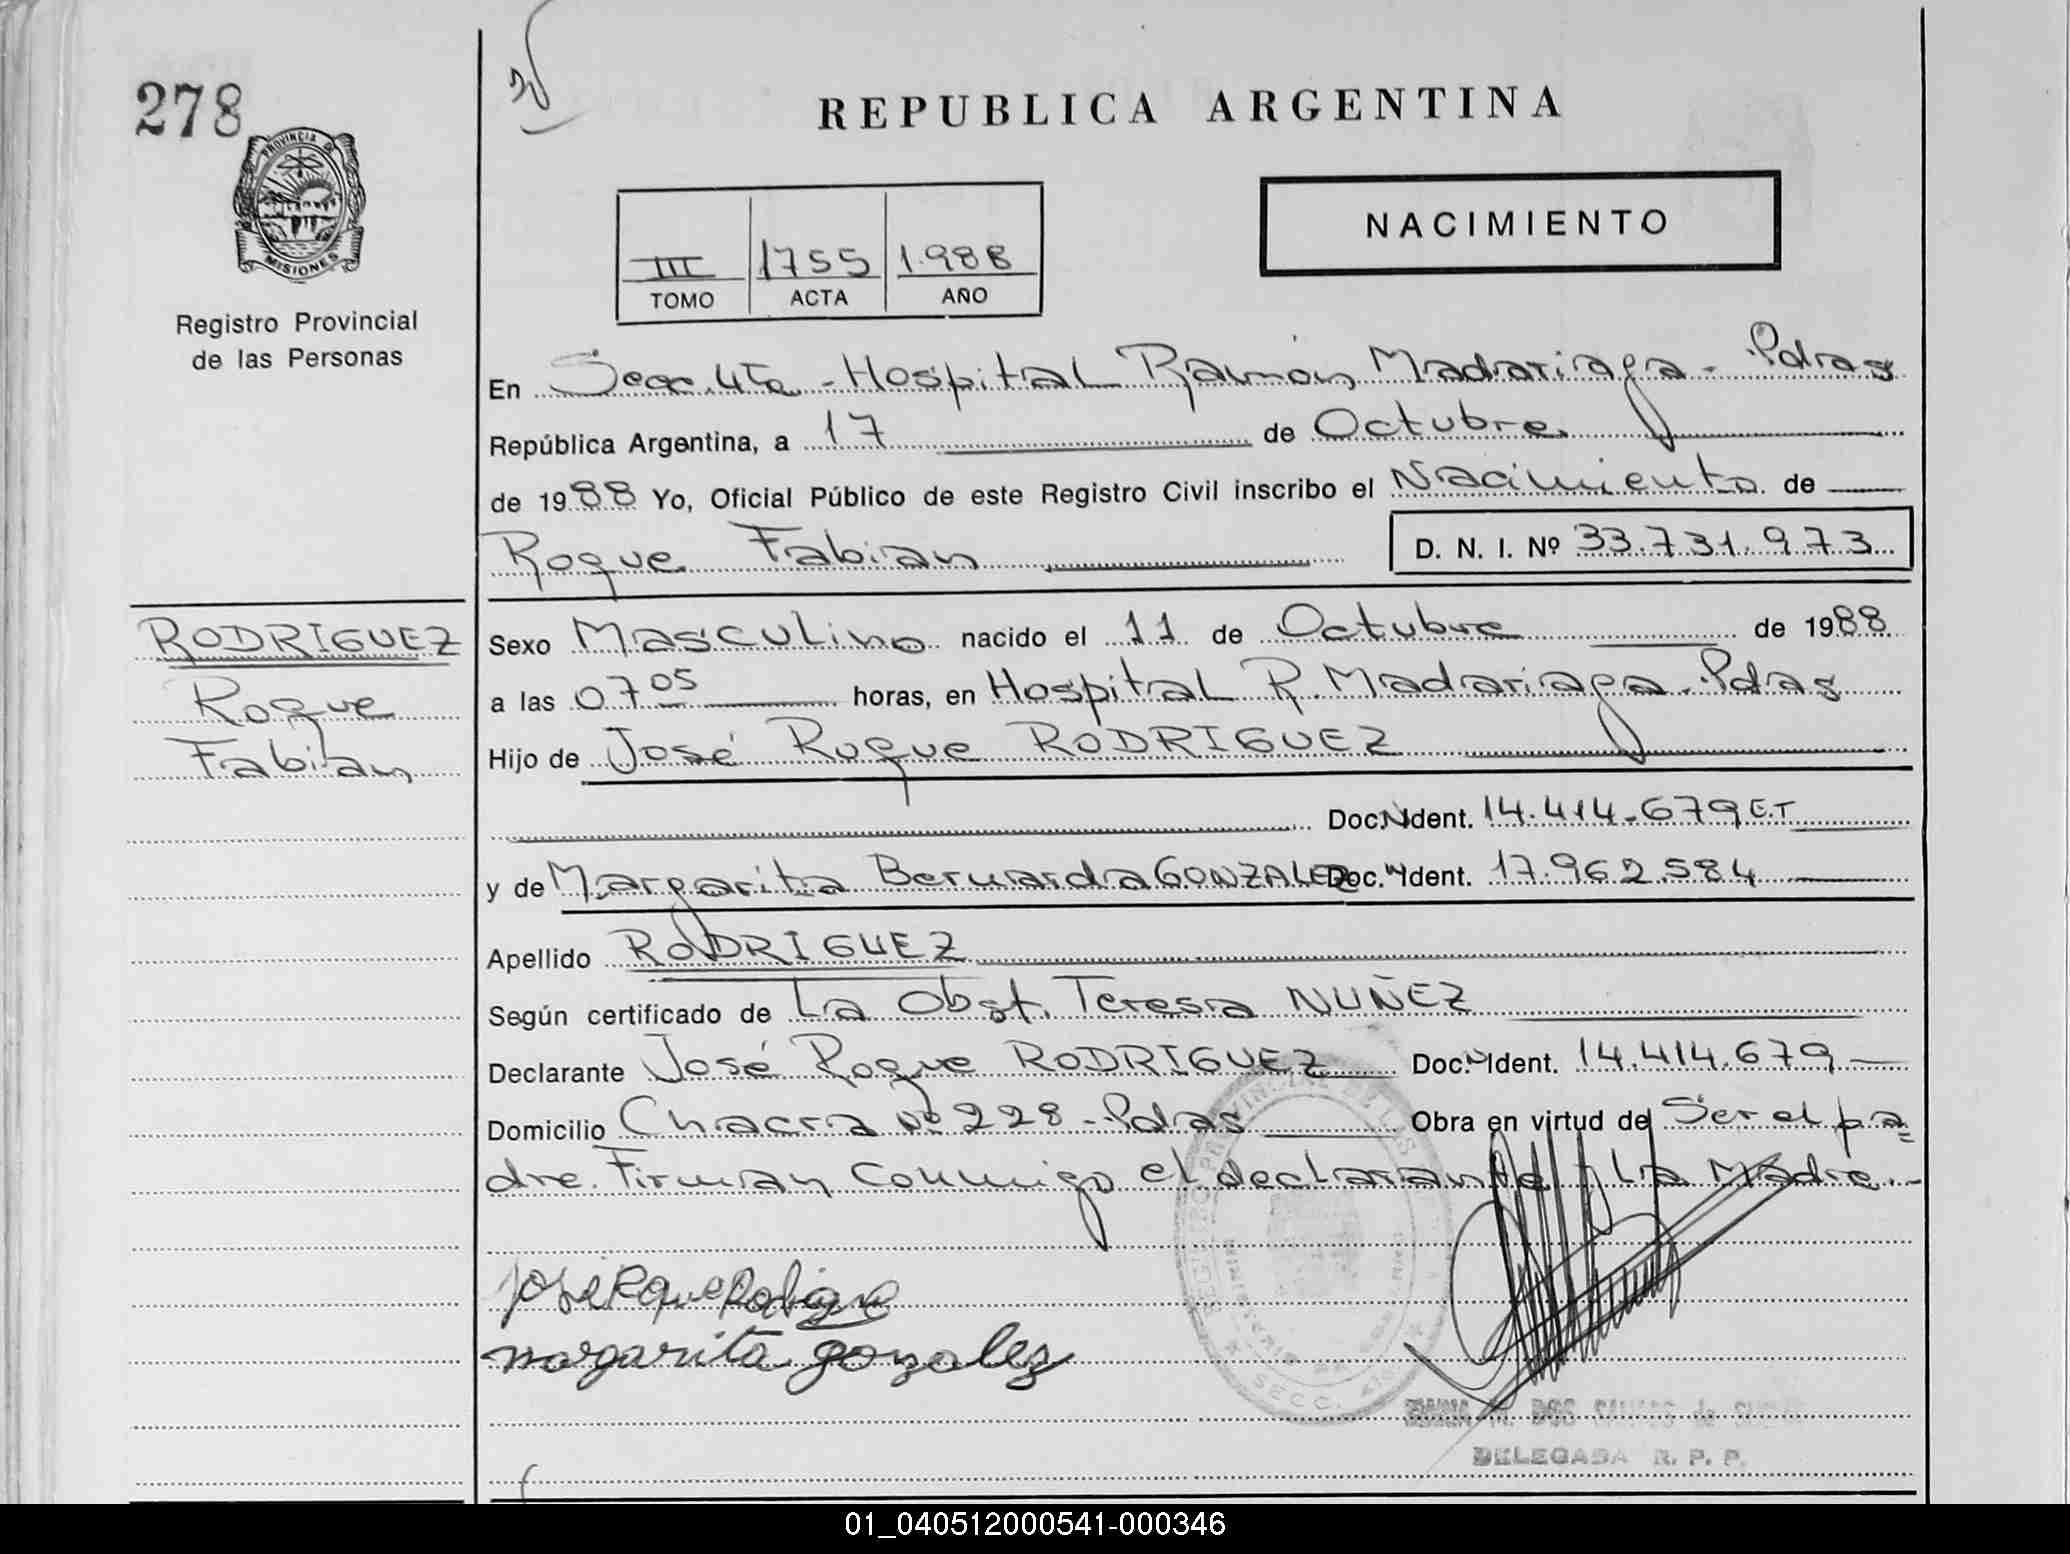 278
REPUBLICA ARGENTINA
PROVINCIA DE
MISIONES
Registro Provincial
de las Personas
NACIMIENTO
III 1755 1.988
TOMO ACTA AÑO
En Secc. 4ta - Hospital Ramón Madariaga - Pdas
República Argentina, a 17 de Octubre
de 1988 Yo, Oficial Público de este Registro Civil inscribo el Nacimiento de
Roque Fabian D. N. I. Nº 33.731.973
RODRIGUEZ
Roque
Fabian
Sexo Masculino nacido el 11 de Octubre de 1988
a las 07 05 horas, en Hospital R. Madariaga - Pdas
Hijo de José Roque RODRIGUEZ
Doc. Ident. 14.414.679 E.T
y de Margarita Bernarda GONZALEZ Doc. Ident. 17.962.584
Apellido RODRIGUEZ
Según certificado de La Obst. Teresa NUÑEZ
Declarante José Roque RODRIGUEZ Doc. Ident. 14.414.679
Domicilio Chacra Nº 228 - Pdas Obra en virtud de Ser el pa=
dre. Firman Conmigo el declarante y La Madre.-
José Roque Rodrigue
margarita gonzalez
SECC.
DOS SANTOS de
DELEGADA R. P. P.
01_040512000541-000346